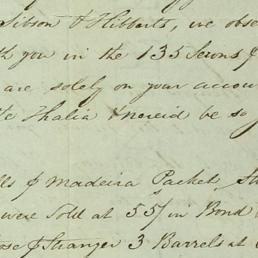 Gibson & Hibberts, we obse
th you in the 135 Serons &
are solely on your accou
Thalia & nereid be so
lls & Madeira Packet, St
were Sold at 55/ in Bond
ose & Stranger 3 Barrels at